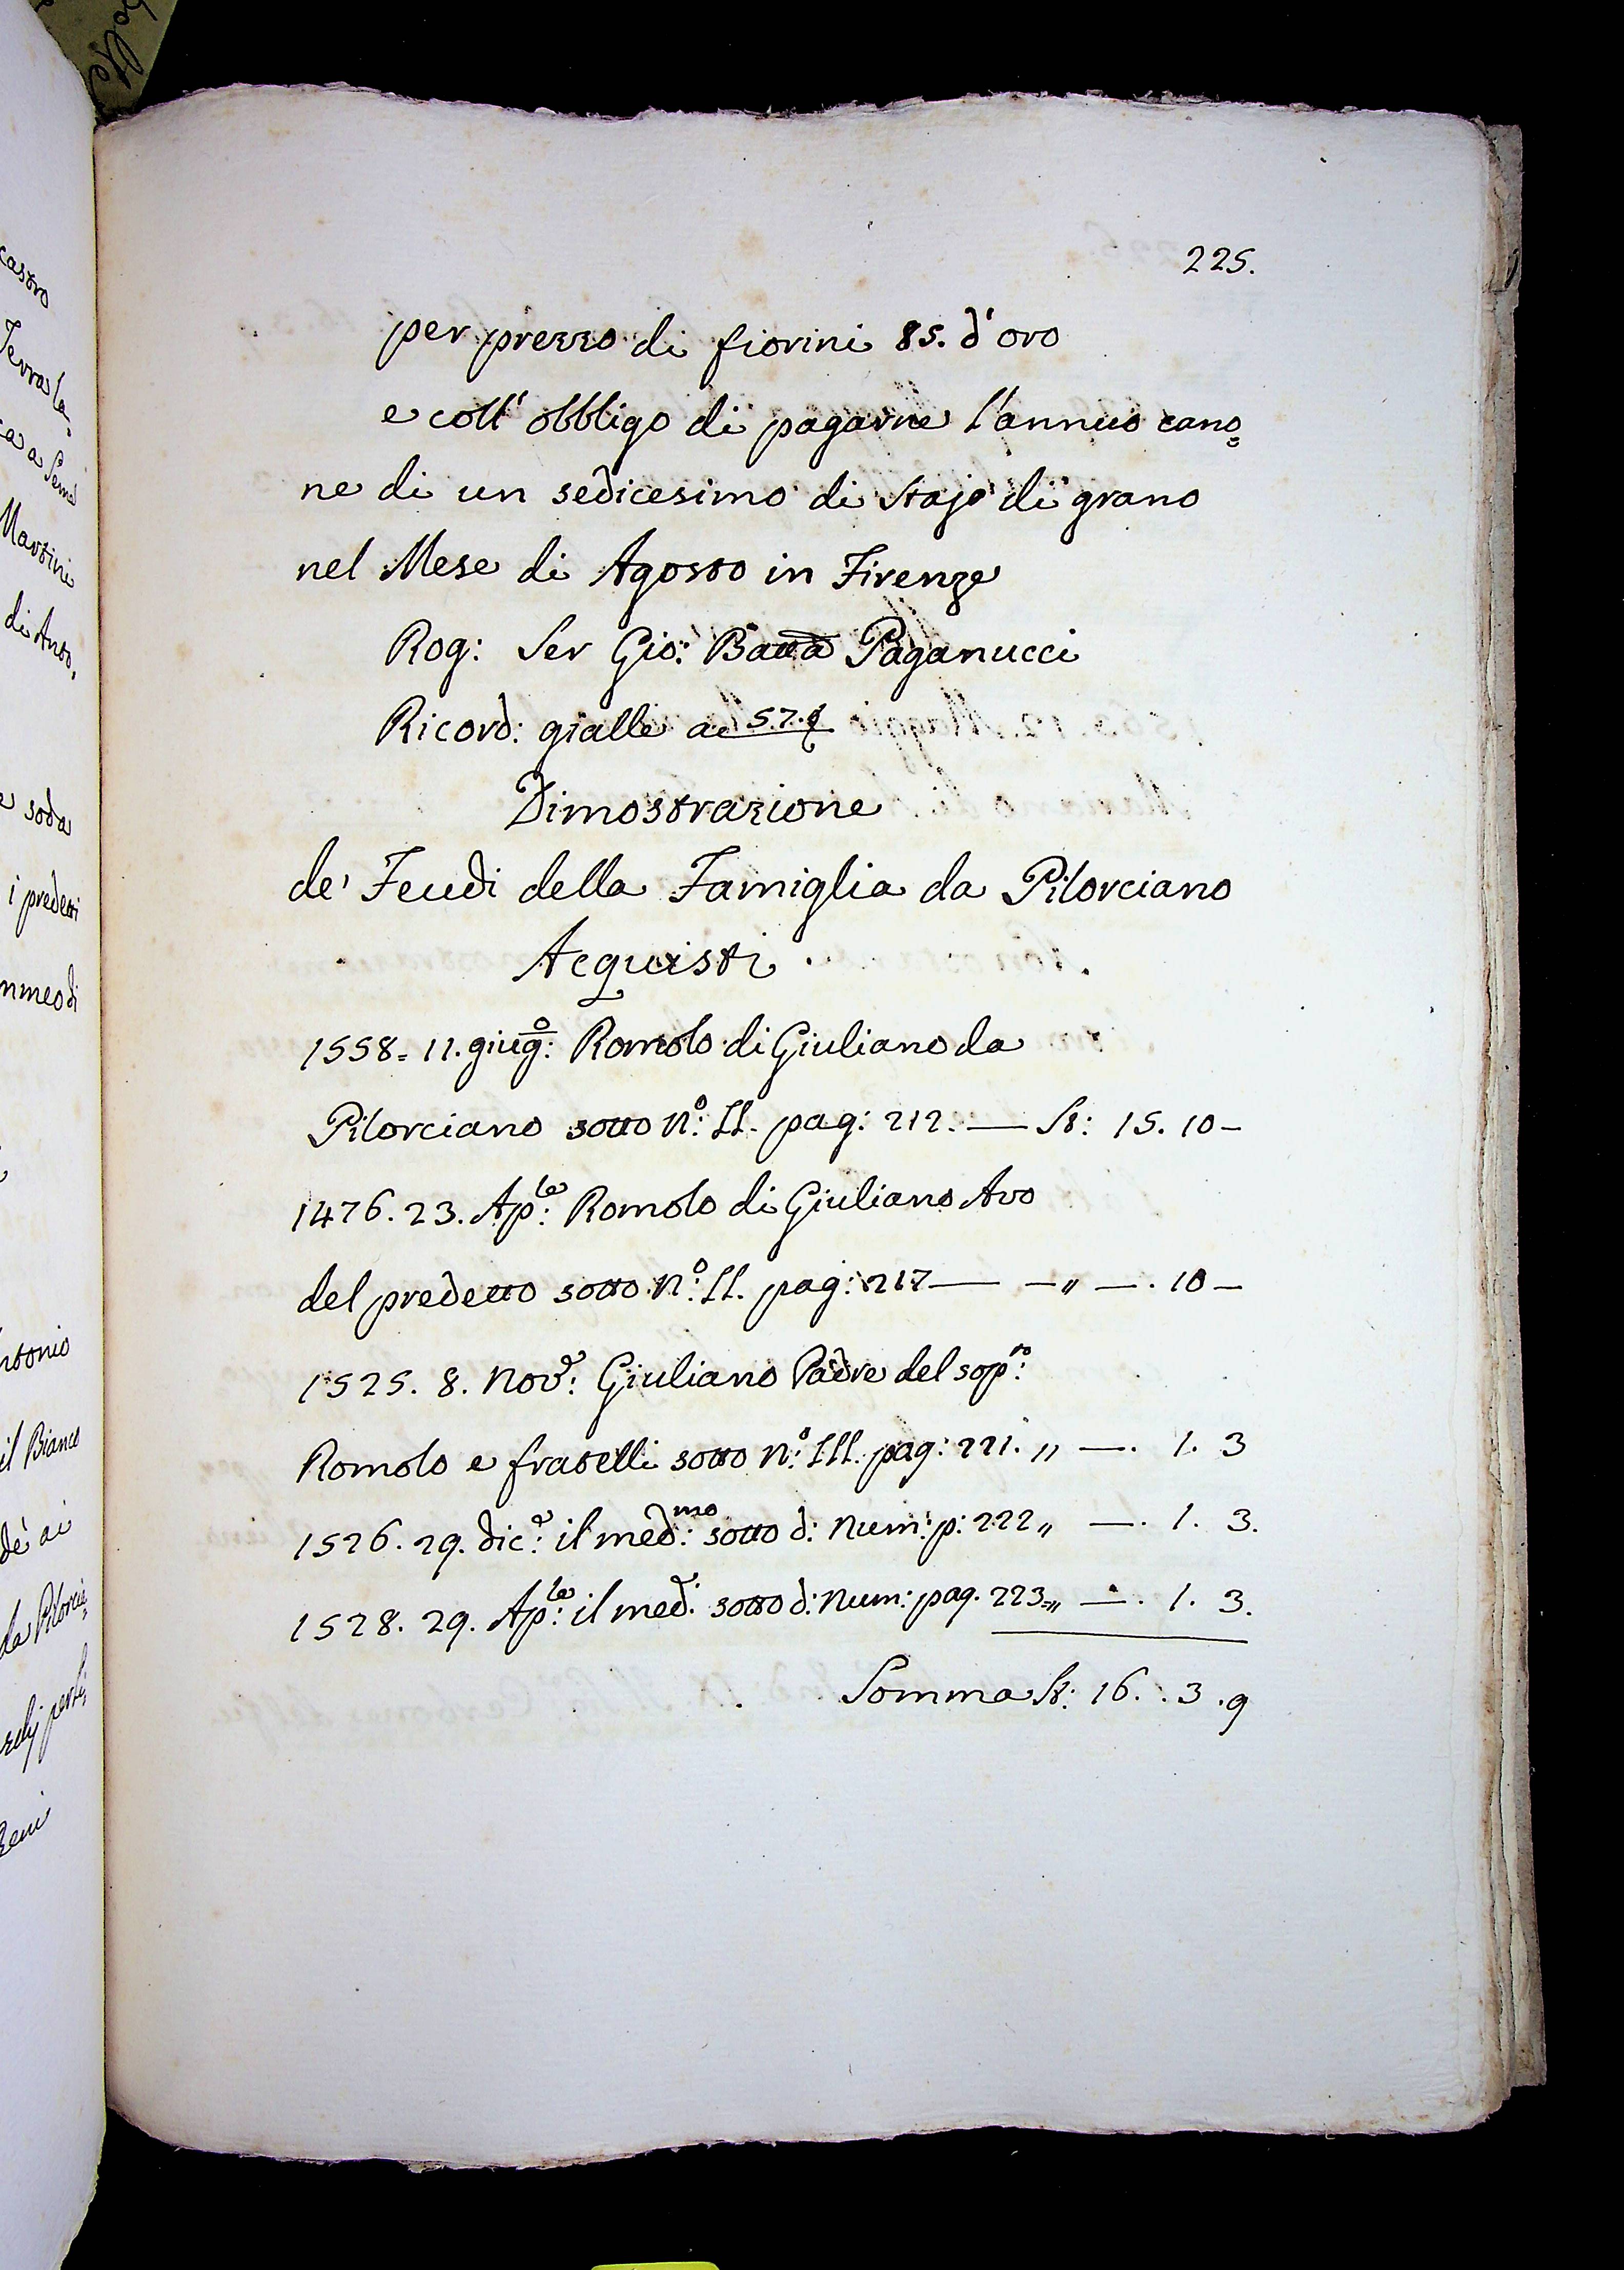 225.
per prezzo di fiorini 85. d'oro
e coll' obbligo di pagarne l'annuo cano=
ne di un sedicesimo di Stajo di grano
nel Mese di Agosto in Firenze
Rog: Ser Gio: Batta Paganucci
Ricord: gialle a
Dimostrazione
de' Feudi della Famiglia da Pilorciano
Acquisti
1558. 11. giugo: Romolo di Giuliano da
Pilorciano sotto No: II. pag: 212. — St: 15. 10 —
1476. 23. Aple: Romolo di Giuliano Avo
del predetto sotto No: II. pag: 217 — — „ —. 10 —
1525. 8. Nove: Giuliano Padre del sopro:
Romolo e fratelli sotto No: III. pag: 221. „ —. 1. 3
1526. 29. dice: il medmo: sotto d: Num: p: 222 „ —. 1. 3.
1528. 29. Aple: il med: sotto d: Num: pag. 223 „ —. 1. 3.
Somma St: 16. . 3 . 9
castro
Terra la
Martini
di Anto.
e soda
i predetti
mmeo di
ntonio
il Bianco
dè ai
da Pilorcia=
Beni